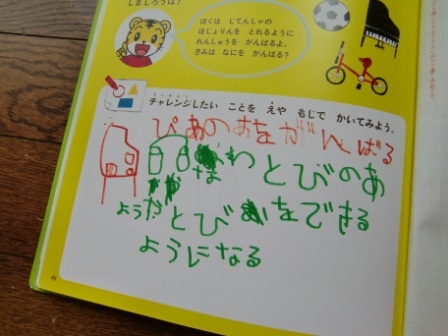 しまじろうは?
ぼくは じてんしゃの
ほじょりんを とれるように
れんしゅうを がんばるよ。
きみは なにを がんばる?
チャレンジしたい ことを えや もじで かいてみよう。
ぴあのおをがんばる
なわとびのあ
とびをできる
ようになる